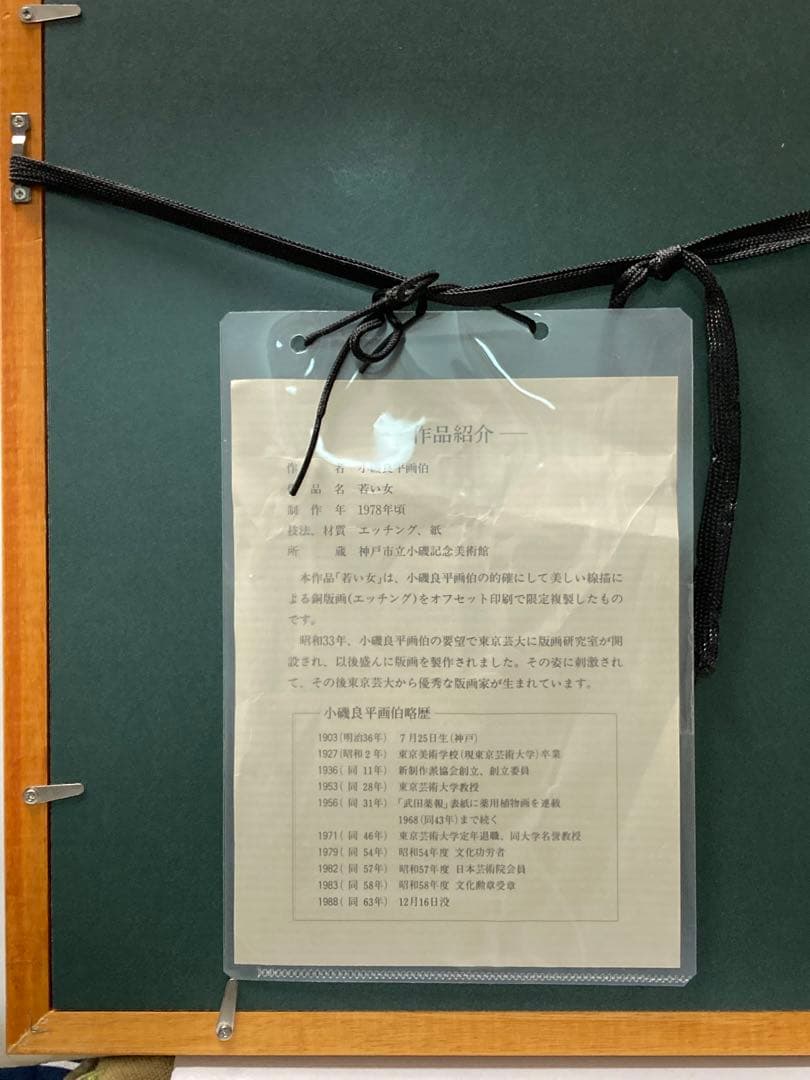 作品紹介 —
作 者 小磯良平画伯
品 名 若い女
制 作 年 1978年頃
技法、材質 エッチング、紙
所 蔵 神戸市立小磯記念美術館
本作品「若い女」は、小磯良平画伯の的確にして美しい線描に
よる銅版画(エッチング)をオフセット印刷で限定複製したもの
です。
昭和33年、小磯良平画伯の要望で東京芸大に版画研究室が開
設され、以後盛んに版画を製作されました。その姿に刺激され
て、その後東京芸大から優秀な版画家が生まれています。
小磯良平画伯略歴
1903(明治36年) 7月25日生(神戸)
1927(昭和2年) 東京美術学校(現東京芸術大学)卒業
1936(同 11年) 新制作派協会創立、創立委員
1953(同 28年) 東京芸術大学教授
1956(同 31年) 「武田薬報」表紙に薬用植物画を連載
1968(同43年)まで続く
1971(同 46年) 東京芸術大学定年退職、同大学名誉教授
1979(同 54年) 昭和54年度 文化功労者
1982(同 57年) 昭和57年度 日本芸術院会員
1983(同 58年) 昭和58年度 文化勲章受章
1988(同 63年) 12月16日没